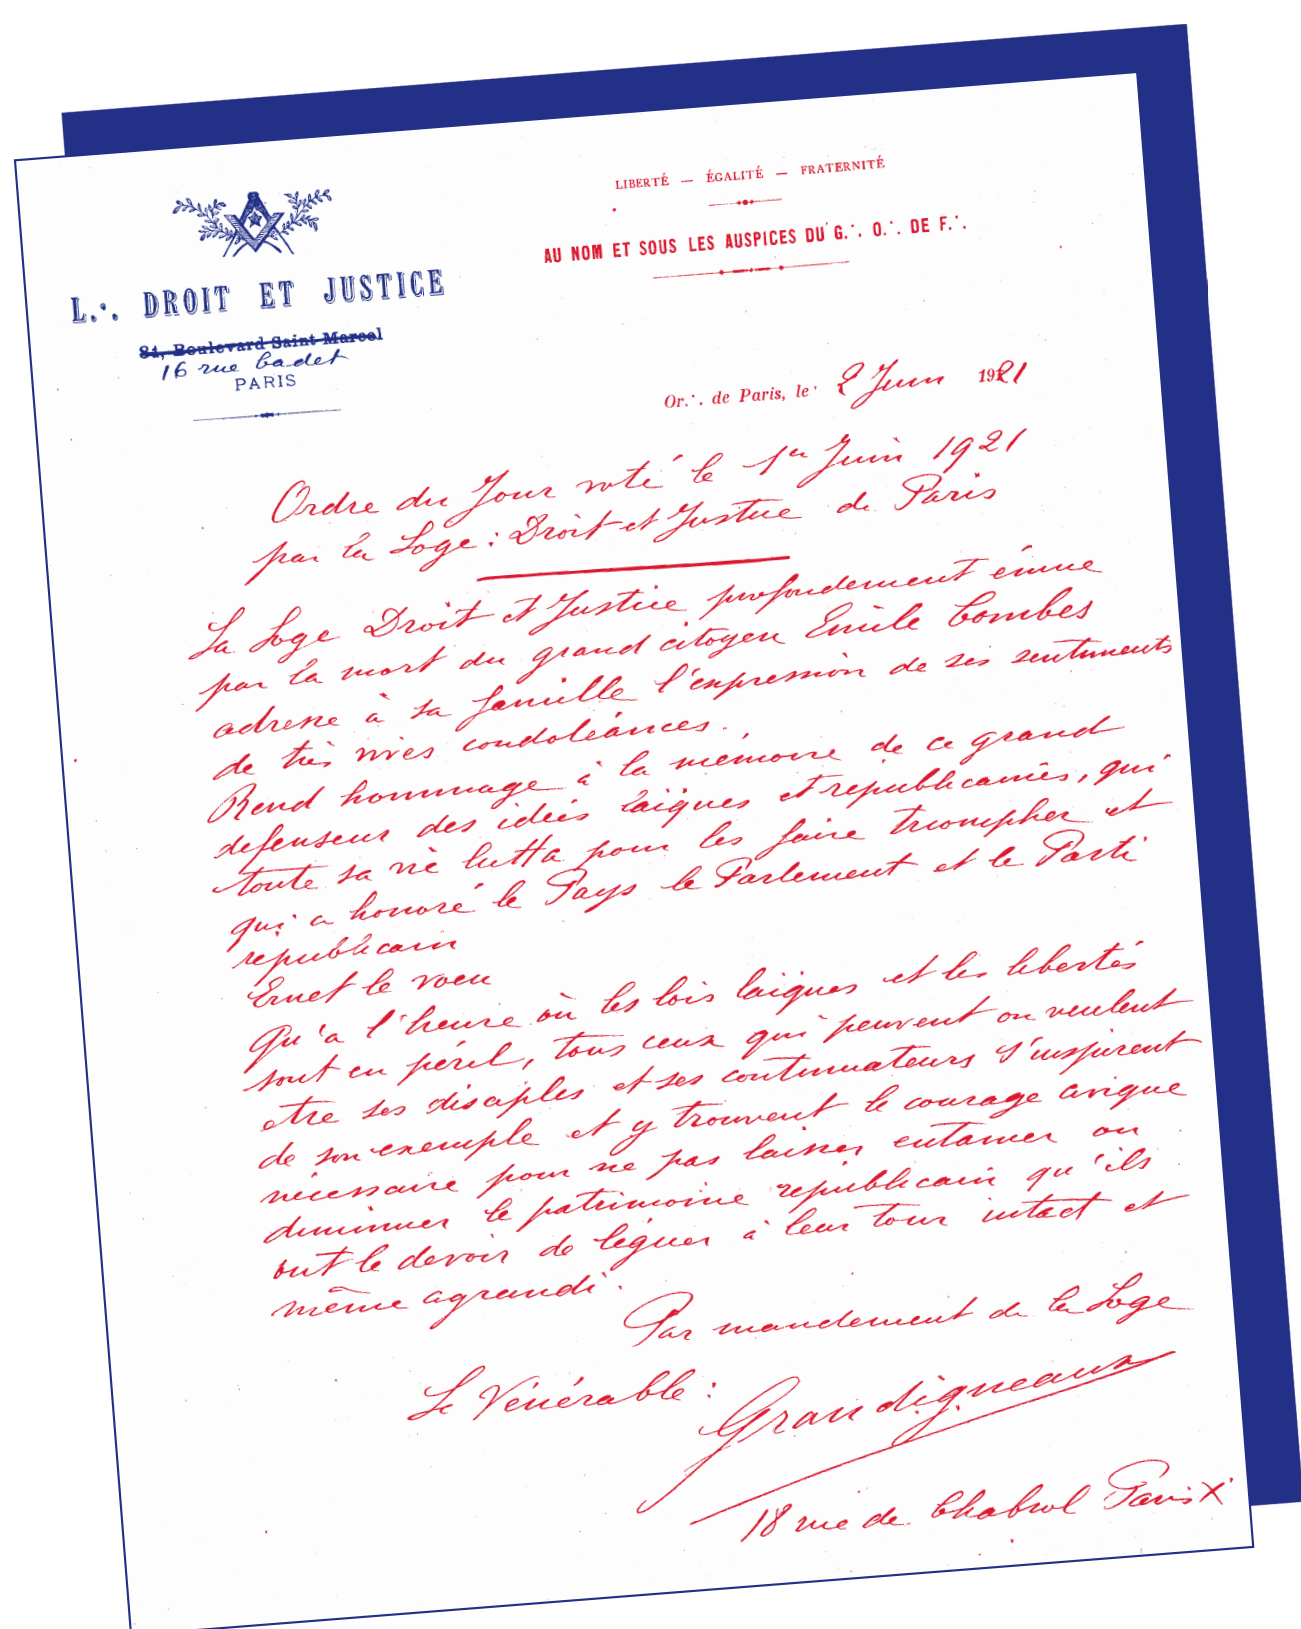 LIBERTÉ — ÉGALITÉ — FRATERNITÉ
AU NOM ET SOUS LES AUSPICES DU G.·. O.·. DE F.·.
L.·. DROIT ET JUSTICE
81, Boulevard Saint-Marcel
16 rue Cadet
PARIS
Or.·. de Paris, le 2 Juin 1921
Ordre du Jour voté le 1er Juin 1921
par la Loge : Droit et Justice de Paris
La Loge Droit et Justice profondement émue
par la mort du grand citoyen Emile Combes
adresse à sa famille l'expression de ses sentiments
de très vives condoléances.
Rend hommage à la mémoire de ce grand
defenseur des idées laïques et republicaines, qui
toute sa vie lutta pour les faire triompher et
qui a honoré le Pays le Parlement et le Parti
republicain
Emet le voeu
Qu'a l'heure où les lois laïques et les libertés
sont en péril, tous ceux qui peuvent ou veulent
etre ses disciples et ses continuateurs s'inspirent
de son exemple et y trouvent le courage civique
nécessaire pour ne pas laisser entamer ou
diminuer le patrimoine républicain qu'ils
ont le devoir de léguer à leur tour intact et
même agrandi.
Par mandement de la Loge
Le Vénérable :
Grandigneaux
18 rue de Chabrol Paris X